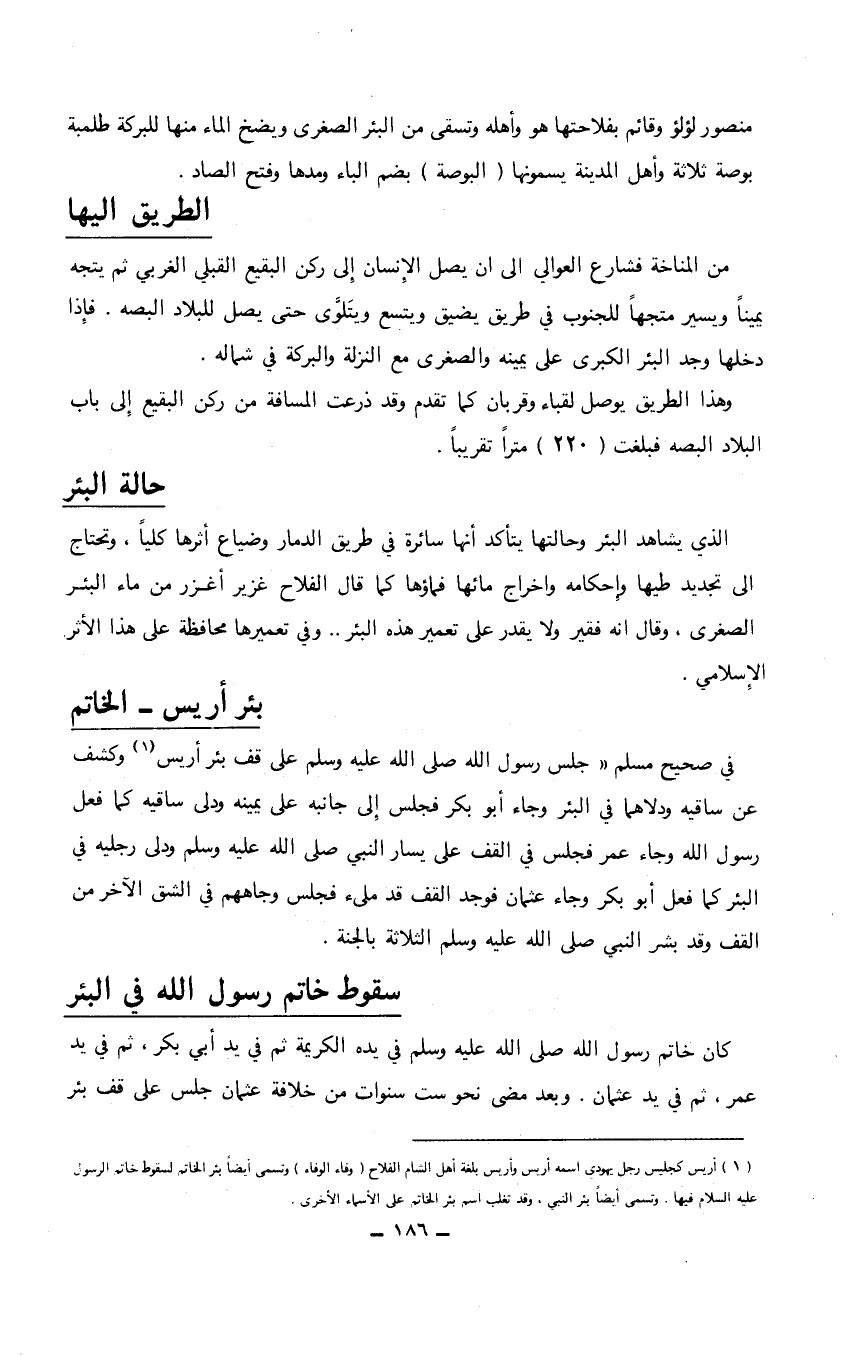 منصور لؤلؤ وقائم بفلاحتها هو وأهله وتسقى من البئر الصغرى ويضخ الماء منها للبركة طلمبة
بوصة ثلاثة وأهل المدينة يسمونها ( البوصة ) بضم الباء ومدها وفتح الصاد .
الطريق اليها
من المناخة فشارع العوالي الى ان يصل الإنسان إلى ركن البقيع القبلي الغربي ثم يتجه
يميناً ويسير متجهاً للجنوب في طريق يضيق ويتسع ويتَلوَّى حتى يصل للبلاد البصه . فإذا
دخلها وجد البئر الكبرى على يمينه والصغرى مع النزلة والبركة في شماله .
وهذا الطريق يوصل لقباء وقربان كما تقدم وقد ذرعت المسافة من ركن البقيع إلى باب
البلاد البصه فبلغت ( ٢٢٠ ) متراً تقريباً .
حالة البئر
الذي يشاهد البئر وحالتها يتأكد أنها سائرة في طريق الدمار وضياع أثرها كلياً ، وتحتاج
الى تجديد طيها وإحكامه واخراج مائها فماؤها كما قال الفلاح غزير أغـزر من ماء البئـر
الصغرى ، وقال انه فقير ولا يقدر على تعمير هذه البئر .. وفي تعميرها محافظة على هذا الأثر
الإسلامي .
بئر أريس – الخاتم
في صحيح مسلم « جلس رسول الله صلى الله عليه وسلم على قف بئر أريس(١) وكشف
عن ساقيه ودلاهما في البئر وجاء أبو بكر فجلس إلى جانبه على يمينه ودلى ساقيه كما فعل
رسول الله وجاء عمر فجلس في القف على يسار النبي صلى الله عليه وسلم ودلى رجليه في
البئر كما فعل أبو بكر وجاء عثمان فوجد القف قد ملىء فجلس وجاههم في الشق الآخر من
القف وقد بشر النبي صلى الله عليه وسلم الثلاثة بالجنة .
سقوط خاتم رسول الله في البئر
كان خاتم رسول الله صلى الله عليه وسلم في يده الكريمة ثم في يد أبي بكر ، ثم في يد
عمر ، ثم في يد عثمان . وبعد مضى نحو ست سنوات من خلافة عثمان جلس على قف بئر
( ١ ) أريس كجليس رجل يهودي اسمه أريس وأريس بلغة أهل الشام الفلاح ( وفاء الوفاء ) وتسمى أيضاً بئر الخاتم لسقوط خاتم الرسول
عليه السلام فيها . وتسمى أيضاً بئر النبي ، وقد تغلب اسم بئر الخاتم على الأسماء الأخرى .
– ١٨٦ –